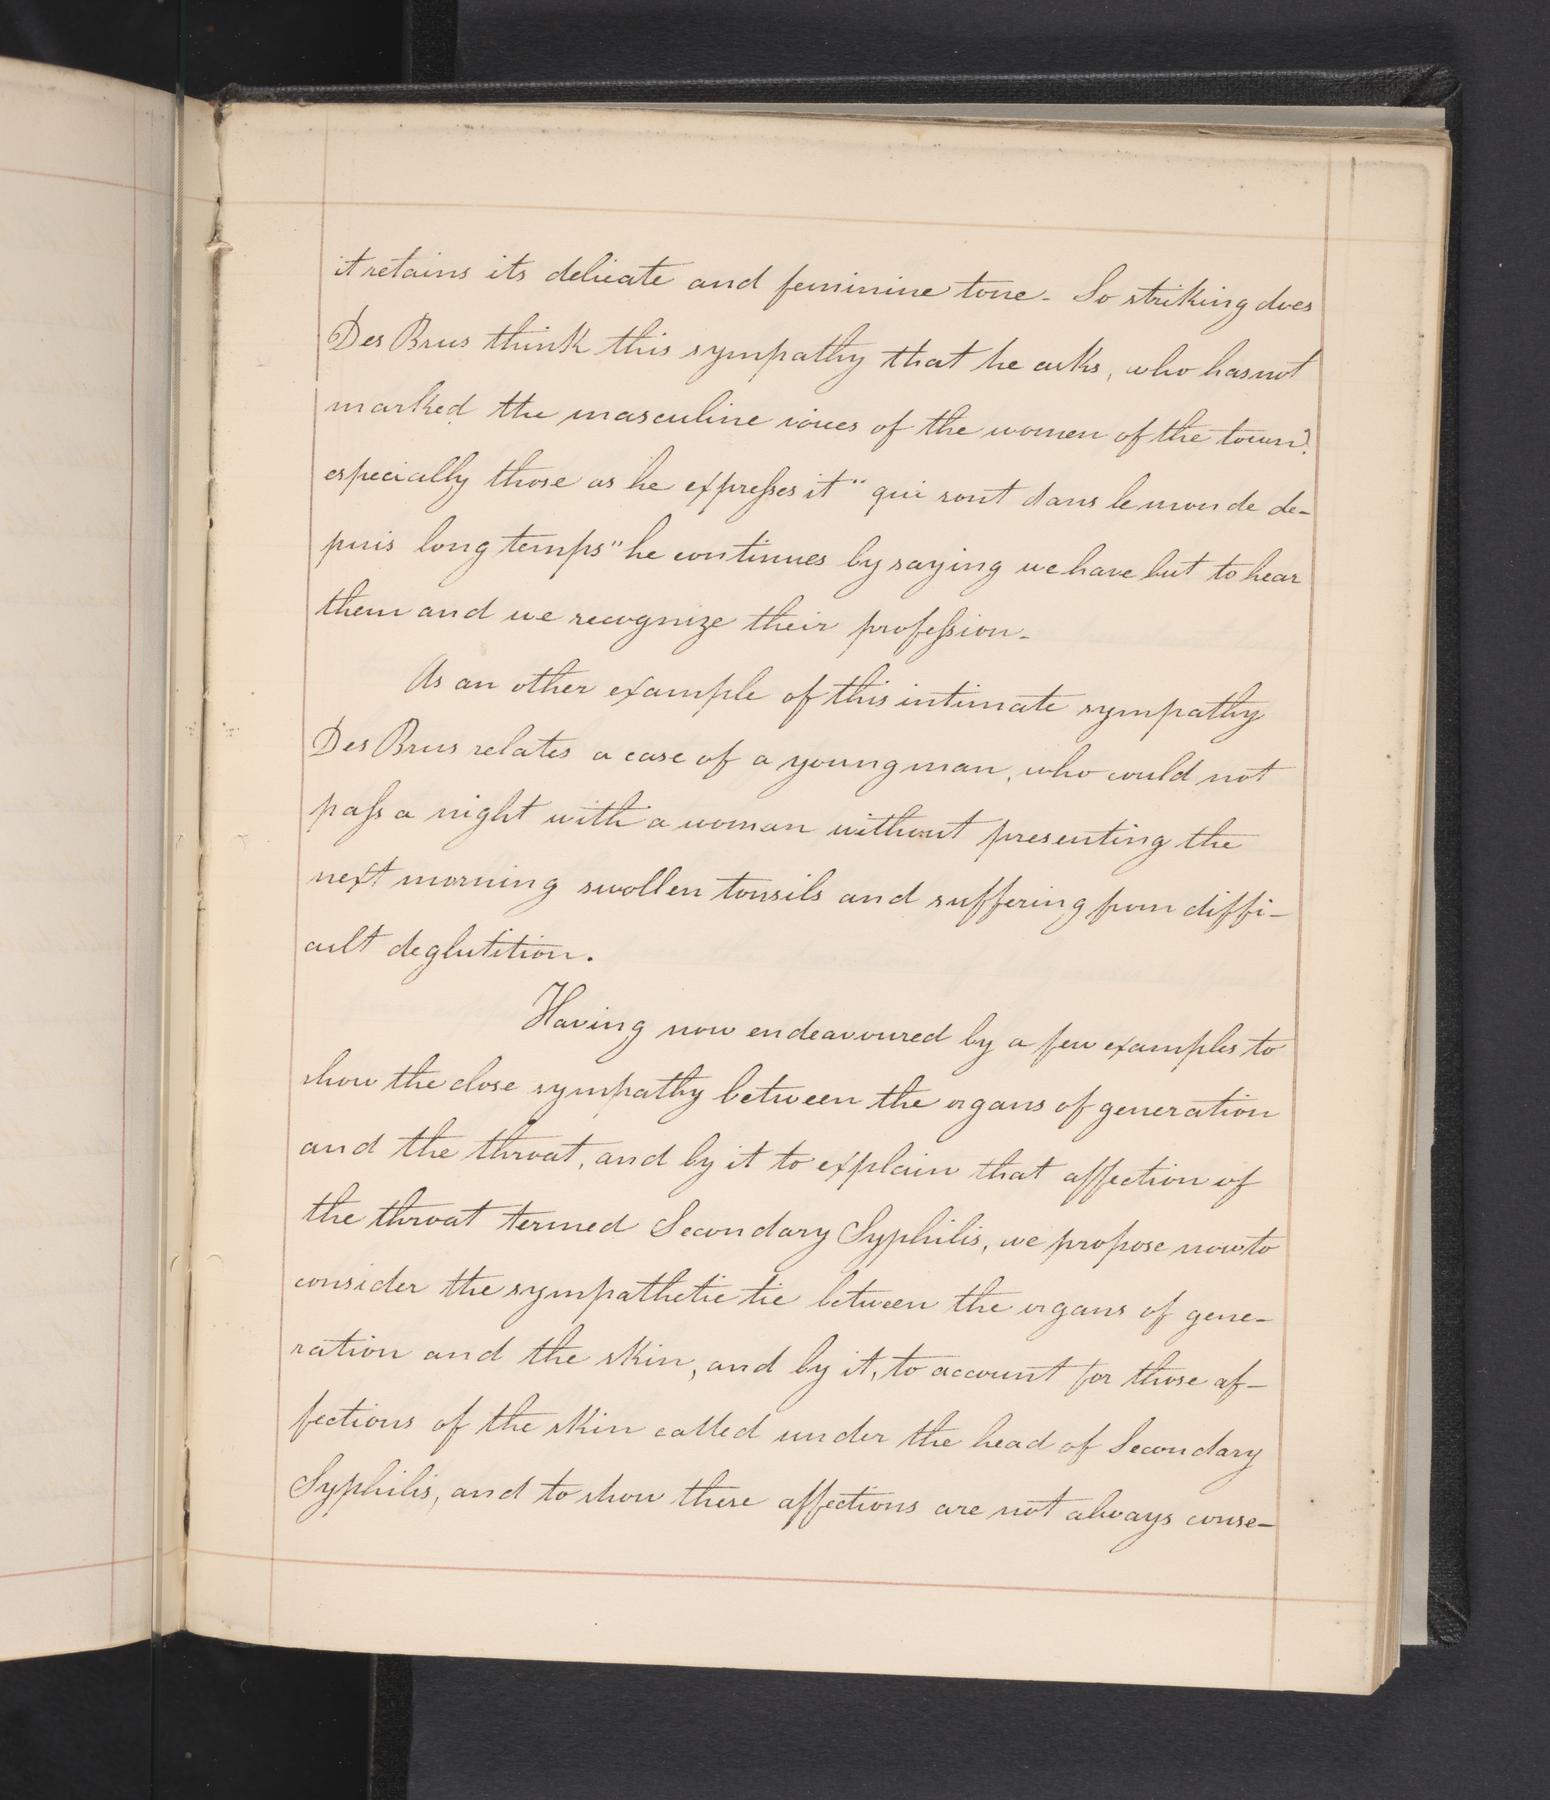 it retains its delicate and feminine tone - So striking does
Des Brus think this sympathy that he asks, who has not
marked the masculine voices of the women of the town?
especially those as he expresses it "qui sont dans le monde de-
puis long temps" he continues by saying we have but to hear
them and we recognize their profession -
As an other example of this intimate sympathy
Des Brus relates a case of a young man, who could not
pass a night with a woman without presenting the
next morning swollen tonsils and suffering from diffi-
cult deglutition.
Having now endeavoured by a few examples to
show the close sympathy between the organs of generation
and the throat, and by it to explain that affection of
the throat termed Secondary Syphilis, we propose now to
consider the sympathetic tie between the organs of gene-
ration and the skin, and by it, to account for those af-
fections of the skin called under the head of Secondary
Syphilis, and to show these affections are not always conse-